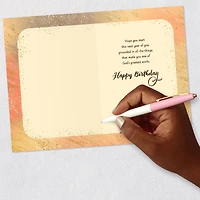 Hope you start
the next year of you
grounded in all the things
that make you one of
God's greatest works.
Happy Birthday